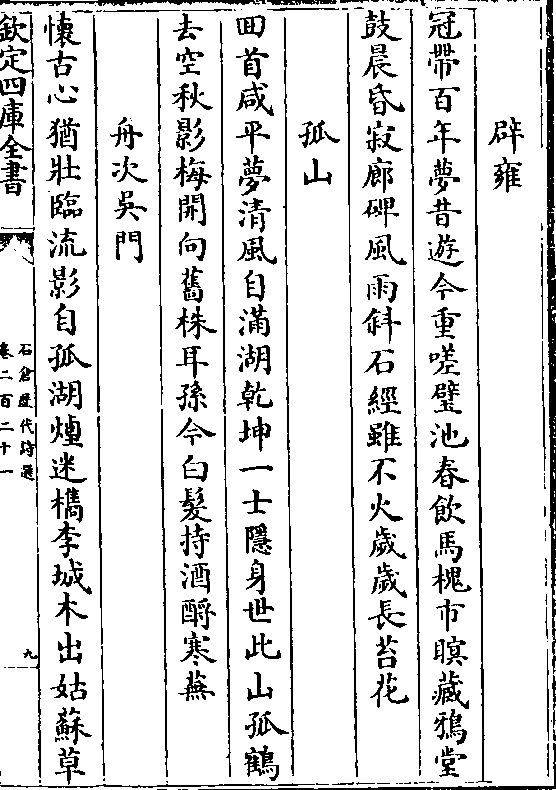 辟雍
冠帶百年夢昔遊今重嗟璧池春飲馬槐市暝藏鴉堂
鼓晨昏寂廊碑風雨斜石經雖不火歲歲長苔花
孤山
囬首咸平夢清風自滿湖乾坤一士隱身世此山孤鶴
去空秋影梅開向舊株耳孫今白髮持酒酹寒蕪
舟次吳門
懐古心猶壯臨流影自孤湖煙迷檇李城木出姑蘇草
欽定四庫全書
石倉歷代詩選
卷二百二十一
九